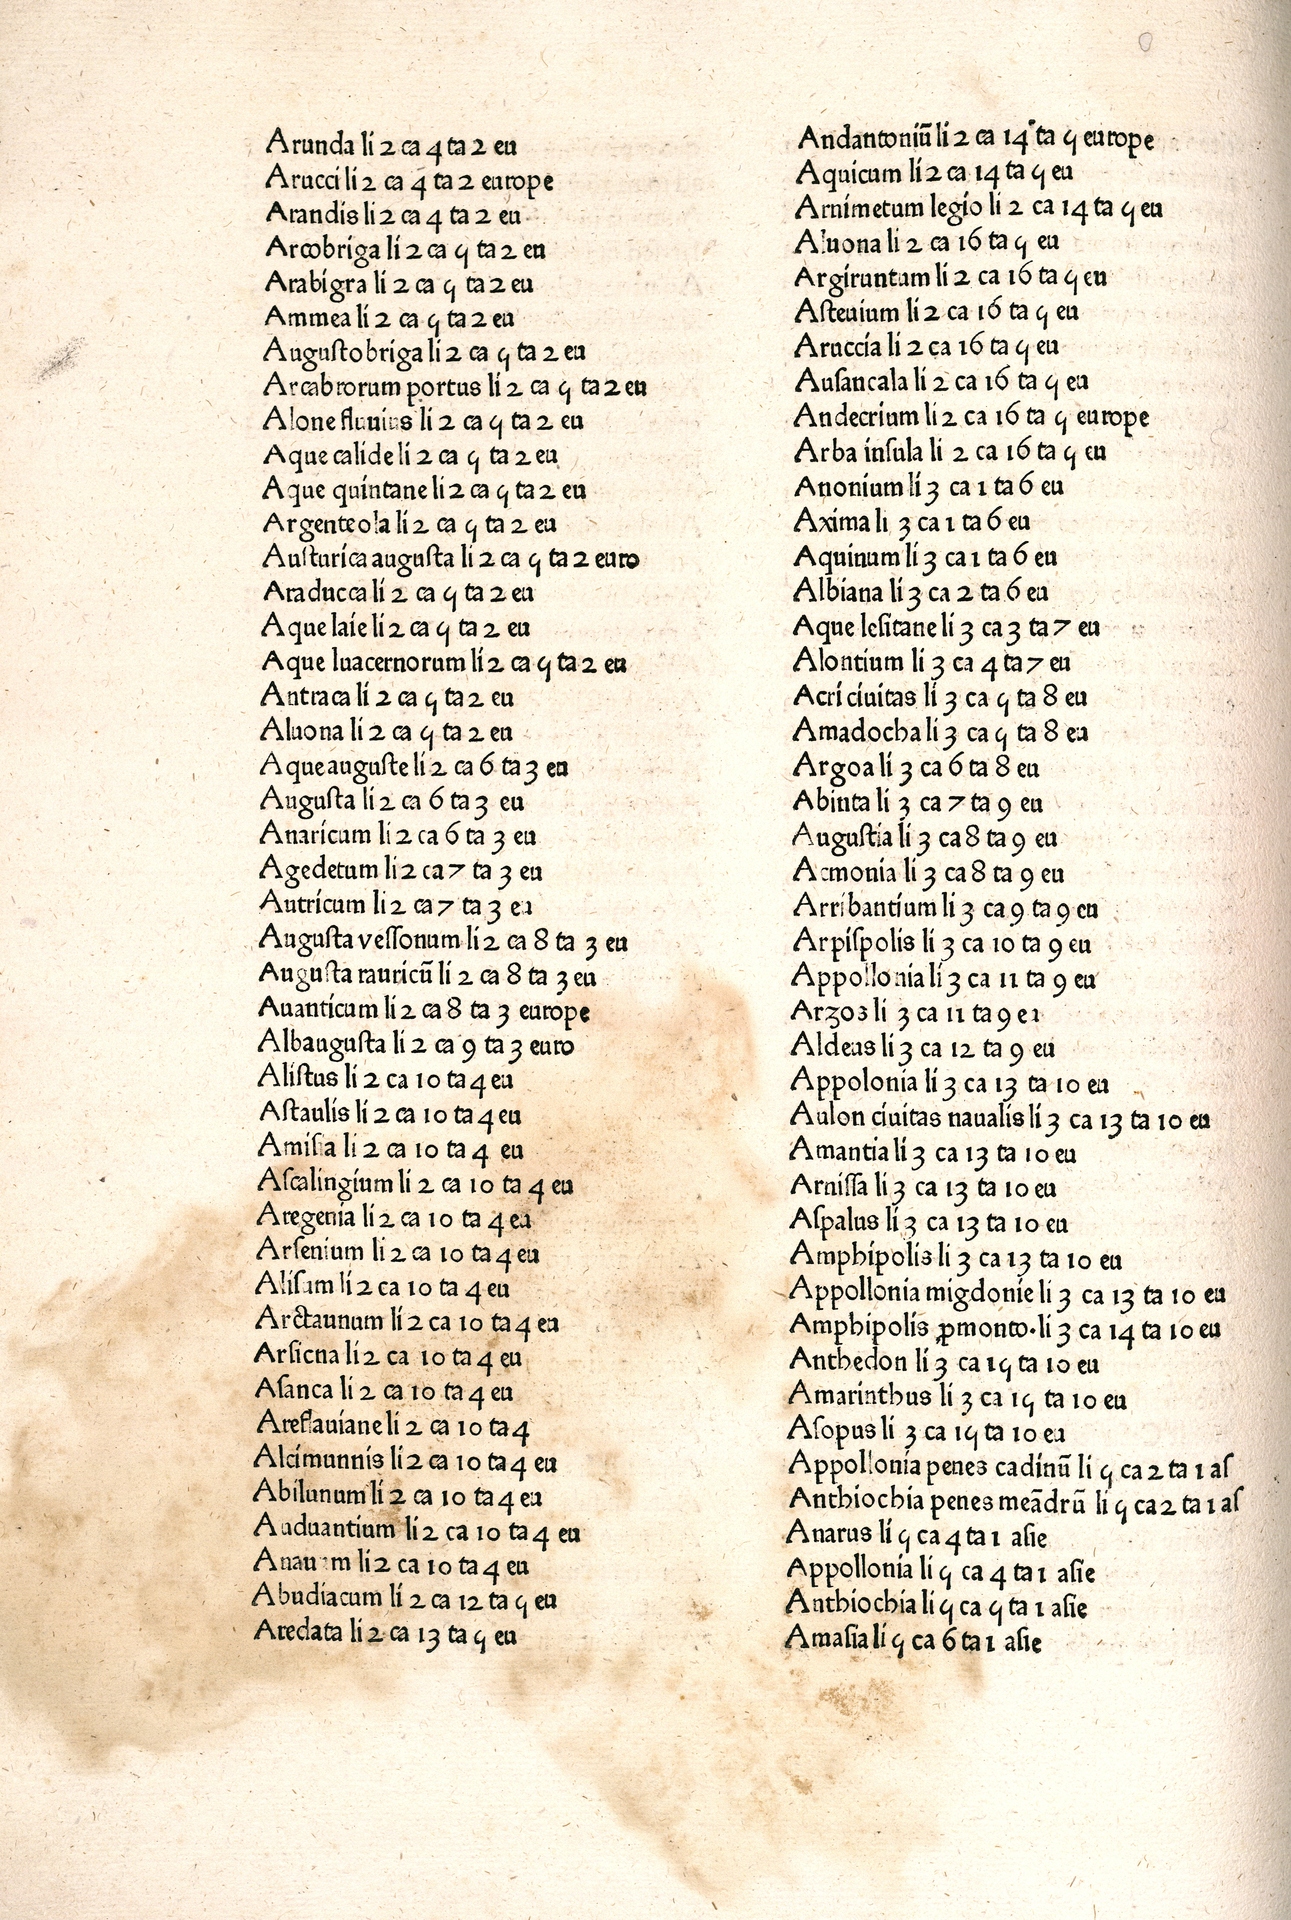 Arunda li 2 ca 4 ta 2 eu
Arucci li 2 ca 4 ta 2 europe
Arandis li 2 ca 4 ta 2 eu
Arcobriga li 2 ca 5 ta 2 eu
Arabigra li 2 ca 5 ta 2 eu
Ammea li 2 ca 5 ta 2 eu
Auguſtobriga li 2 ca 5 ta 2 eu
Arcabrorum portus li 2 ca 5 ta 2 eu
Alone fluuius li 2 ca 5 ta 2 eu
Aque calide li 2 ca 5 ta 2 eu
Aque quintane li 2 ca 5 ta 2 eu
Argenteola li 2 ca 5 ta 2 eu
Auſturica auguſta li 2 ca 5 ta 2 euro
Araducca li 2 ca 5 ta 2 eu
Aque laie li 2 ca 5 ta 2 eu
Aque luacernorum li 2 ca 5 ta 2 eu
Antraca li 2 ca 5 ta 2 eu
Aluona li 2 ca 5 ta 2 eu
Aque auguſte li 2 ca 6 ta 3 eu
Auguſta li 2 ca 6 ta 3 eu
Anaricum li 2 ca 6 ta 3 eu
Agedetum li 2 ca 7 ta 3 eu
Autricum li 2 ca 7 ta 3 eu
Auguſta veſſonum li 2 ca 8 ta 3 eu
Auguſta rauricū li 2 ca 8 ta 3 eu
Auanticum li 2 ca 8 ta 3 europe
Albauguſta li 2 ca 9 ta 3 euro
Aliſtus li 2 ca 10 ta 4 eu
Aſtaulis li 2 ca 10 ta 4 eu
Amiſia li 2 ca 10 ta 4 eu
Aſcalingium li 2 ca 10 ta 4 eu
Aregenia li 2 ca 10 ta 4 eu
Arſenium li 2 ca 10 ta 4 eu
Aliſum li 2 ca 10 ta 4 eu
Arctaunum li 2 ca 10 ta 4 eu
Arſicna li 2 ca 10 ta 4 eu
Aſanca li 2 ca 10 ta 4 eu
Areflauiane li 2 ca 10 ta 4
Alcimunnis li 2 ca 10 ta 4 eu
Abilunum li 2 ca 10 ta 4 eu
Auduantium li 2 ca 10 ta 4 eu
li 2 ca 10 ta 4 eu
Abudiacum li 2 ca 12 ta 5 eu
Aredata li 2 ca 13 ta 5 eu
Andantoniū li 2 ca 14 ta 5 europe
Aquicum li 2 ca 14 ta 5 eu
Arnimetum legio li 2 ca 14 ta 5 eu
Aluona li 2 ca 16 ta 5 eu
Argiruntum li 2 ca 16 ta 5 eu
Aſteuium li 2 ca 16 ta 5 eu
Aruccia li 2 ca 16 ta 5 eu
Auſancala li 2 ca 16 ta 5 eu
Andecrium li 2 ca 16 ta 5 europe
Arba inſula li 2 ca 16 ta 5 eu
Anonium li 3 ca 1 ta 6 eu
Axima li 3 ca 1 ta 6 eu
Aquinum li 3 ca 1 ta 6 eu
Albiana li 3 ca 2 ta 6 eu
Aque leſitane li 3 ca 3 ta 7 eu
Alontium li 3 ca 4 ta 7 eu
Acri ciuitas li 3 ca 5 ta 8 eu
Amadocha li 3 ca 5 ta 8 eu
Argoa li 3 ca 6 ta 8 eu
Abinta li 3 ca 7 ta 9 eu
Auguſtia li 3 ca 8 ta 9 eu
Acmonia li 3 ca 8 ta 9 eu
Arribantium li 3 ca 9 ta 9 eu
Arpiſpolis li 3 ca 10 ta 9 eu
Appollonia li 3 ca 11 ta 9 eu
Arzos li 3 ca 11 ta 9 eu
Aldeus li 3 ca 12 ta 9 eu
Appolonia li 3 ca 13 ta 10 eu
Aulon ciuitas naualis li 3 ca 13 ta 10 eu
Amantia li 3 ca 13 ta 10 eu
Arniſſa li 3 ca 13 ta 10 eu
Aſpalus li 3 ca 13 ta 10 eu
Amphipolis li 3 ca 13 ta 10 eu
Appollonia migdonie li 3 ca 13 ta 10 eu
Amphipolis ꝓmonto· li 3 ca 14 ta 10 eu
Anthedon li 3 ca 15 ta 10 eu
Amarinthus li 3 ca 15 ta 10 eu
Aſopus li 3 ca 15 ta 10 eu
Appollonia penes cadinū li 5 ca 2 ta 1 aſ
Anthiochia penes meādrū li 5 ca 2 ta 1 aſ
Anarus li 5 ca 4 ta 1 aſie
Appollonia li 5 ca 4 ta 1 aſie
Anthiochia li 5 ca 5 ta 1 aſie
Amaſia li 5 ca 6 ta 1 aſie